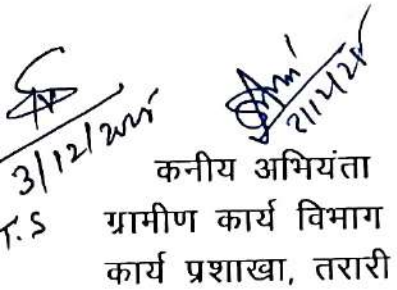 3/12/2025
T.S
कनीय अभियंता
ग्रामीण कार्य विभाग
कार्य प्रशाखा, तरारी